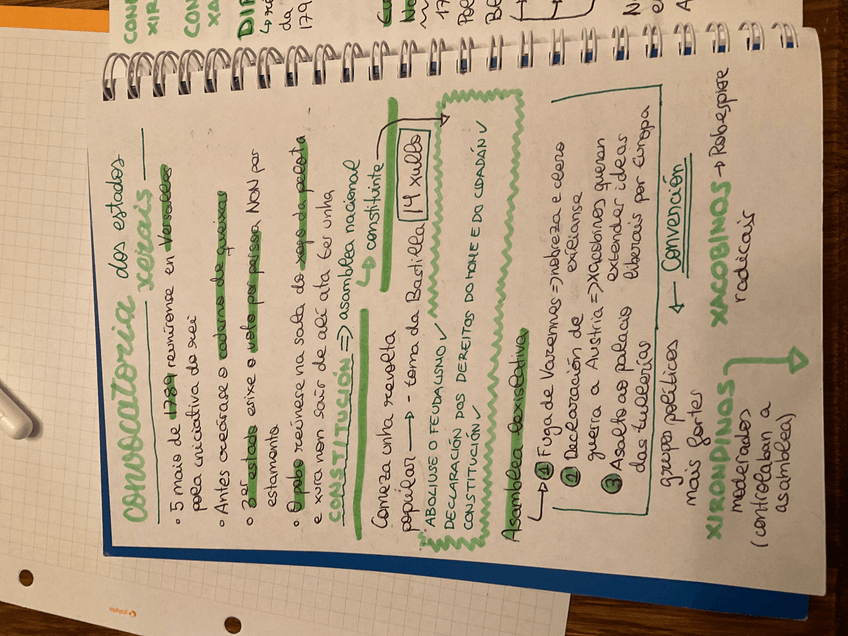 convocatoria dos estados
xerais
• 5 maio de 1789 reunironse en Versalles
pola iniciativa do rei
• Antes creárase o caderno de queixas
• 3er estado esixe o voto por persoa NON por
estamento
• O pobo reúnese na sala do xogo da pelota
e xura non sair de alí ata ter unha
CONSTITUCIÓN => asamblea nacional
↳ constituínte
Comeza unha revolta
popular → - toma da Bastilla 14 xullo
ABOLIUSE O FEUDALISMO ✓
DECLARACIÓN DOS DEREITOS DO HOME E DO CIDADÁN ✓
CONSTITUCIÓN ✓
Asamblea lexislativa
↳ 1 Fuga de Varennes => nobreza e clero
exilianse
2 Declaración de
guerra a Austria => xacobinos queran
extender ideas
liberais por Europa
3 Asalto ao palacio
das tullerías
grupos políticos ← Convención
mais fortes
XIRONDINOS XACOBINOS → Robespire
moderados radicais
(controlaban a
asamblea)